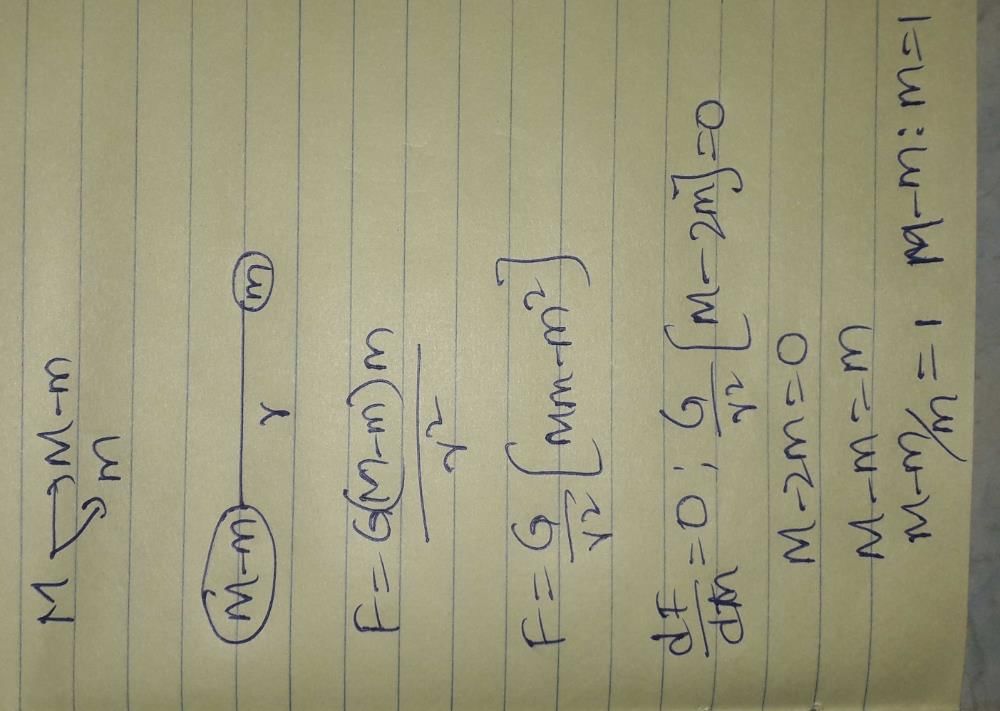 M → M-m
m
M-m r m
F = G(M-m)m / r²
F = G/r² [Mm-m²]
dF/dm = 0 ; G/r² [M-2m] = 0
M-2m = 0
M-m = m
M-m/m = 1 M-m : m = 1